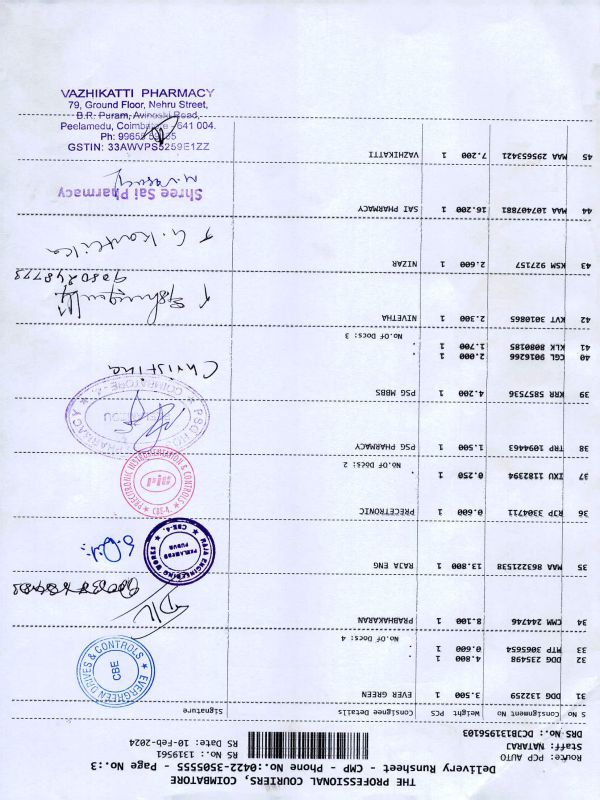 THE PROFESSIONAL COURIERS, COIMBATORE
Delivery Runsheet - CMP - Phone No.:0422-3505555 - Page No.:3
Route: PCP AUTO
Staff: NATARAJ
DRS No.: DCB131956103
RS No.: 1319561
RS Date: 10-Feb-2024
S No Consignment No Weight PCS Consignee Details Signature
31 DDG 132259 3.500 1 EVER GREEN
EVERGREEN DRIVES & CONTROLS
CBE
32 DDG 235498 4.800 1 .
33 MTP 3065654 0.600 1 .
No.Of Docs: 4
34 CWM 244746 8.100 1 PRABHAKARAN
35 MAA 863221538 13.800 1 RAJA ENG
RAJA ENGINEERING WORKS
PEELAMEDU
PUDUR
CBE-4.
36 RJP 3304711 0.600 1 PRECETRONIC
37 IXU 1182394 0.250 1 .
No.Of Docs: 2
PRECETRONIC INSTRUMENTATION & CONTROLS
CBE-4.
38 TRP 1094463 1.500 1 PSG PHARMACY
39 KRR 5857536 4.200 1 PSG MBBS
Christina
40 CGL 9016266 2.000 1 .
41 KLK 8080185 1.700 1 .
No.Of Docs: 3
42 KVT 3010865 2.300 1 NIVETHA
43 KSM 927157 2.600 1 NIZAR
44 MAA 107407881 16.200 1 SAI PHARMACY
Shree Sai Pharmacy
45 MAA 295653421 7.200 1 VAZHIKATTI
VAZHIKATTI PHARMACY
79, Ground Floor, Nehru Street,
B.R. Puram, Avinashi Road,
Peelamedu, Coimbatore - 641 004.
Ph:
GSTIN: 33AWVPS5259E1ZZ